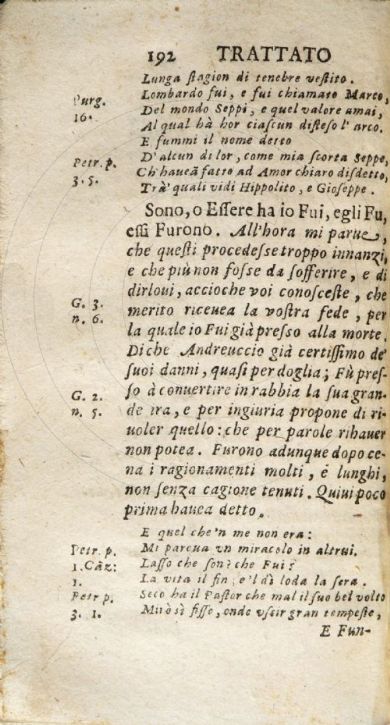 192 TRATTATO
Lunga stagion di tenebre vestito.
Purg. Lombardo fui, e fui chiamato Marco,
16. Del mondo Seppi, e quel valore amai,
Al qual hà hor ciascun disteso l'arco.
E fummi il nome detto
Petr. p. D'alcun di lor, come mia scorta Seppe,
3. 5. Ch'haveà fatto ad Amor chiaro disdetto,
Trà quali vidi Hippolito, e Gioseppe.
Sono, o Essere ha io Fui, egli Fu,
essi Furono. All'hora mi parue,
che questi procedesse troppo innanzi,
e che più non fosse da sofferire, e di
dirloui, accioche voi conosceste, che
G. 3. merito riceuea la vostra fede, per
n. 6. la quale io Fui già presso alla morte.
Di che Andreuccio già certissimo de'
suoi danni, quasi per doglia; Fù pres-
G. 2. so à conuertire in rabbia la sua gran-
n. 5. de ira, e per ingiuria propone di ri-
uoler quello: che per parole rihauer
non potea. Furono adunque dopo ce-
na i ragionamenti molti, e lunghi,
non senza cagione tenuti. Quiui poco
prima hauea detto.
E quel che'n me non era:
Petr. p. Mi pareua vn miracolo in altrui.
1. Cāz: Lasso che son? che Fui?
1. La vita il fin, e'l dì loda la sera.
Petr p. Seco ha il Pastor che mal il suo bel volto
3. 1. Mirò sì fisso, onde vscir gran tempeste,
E Fun-